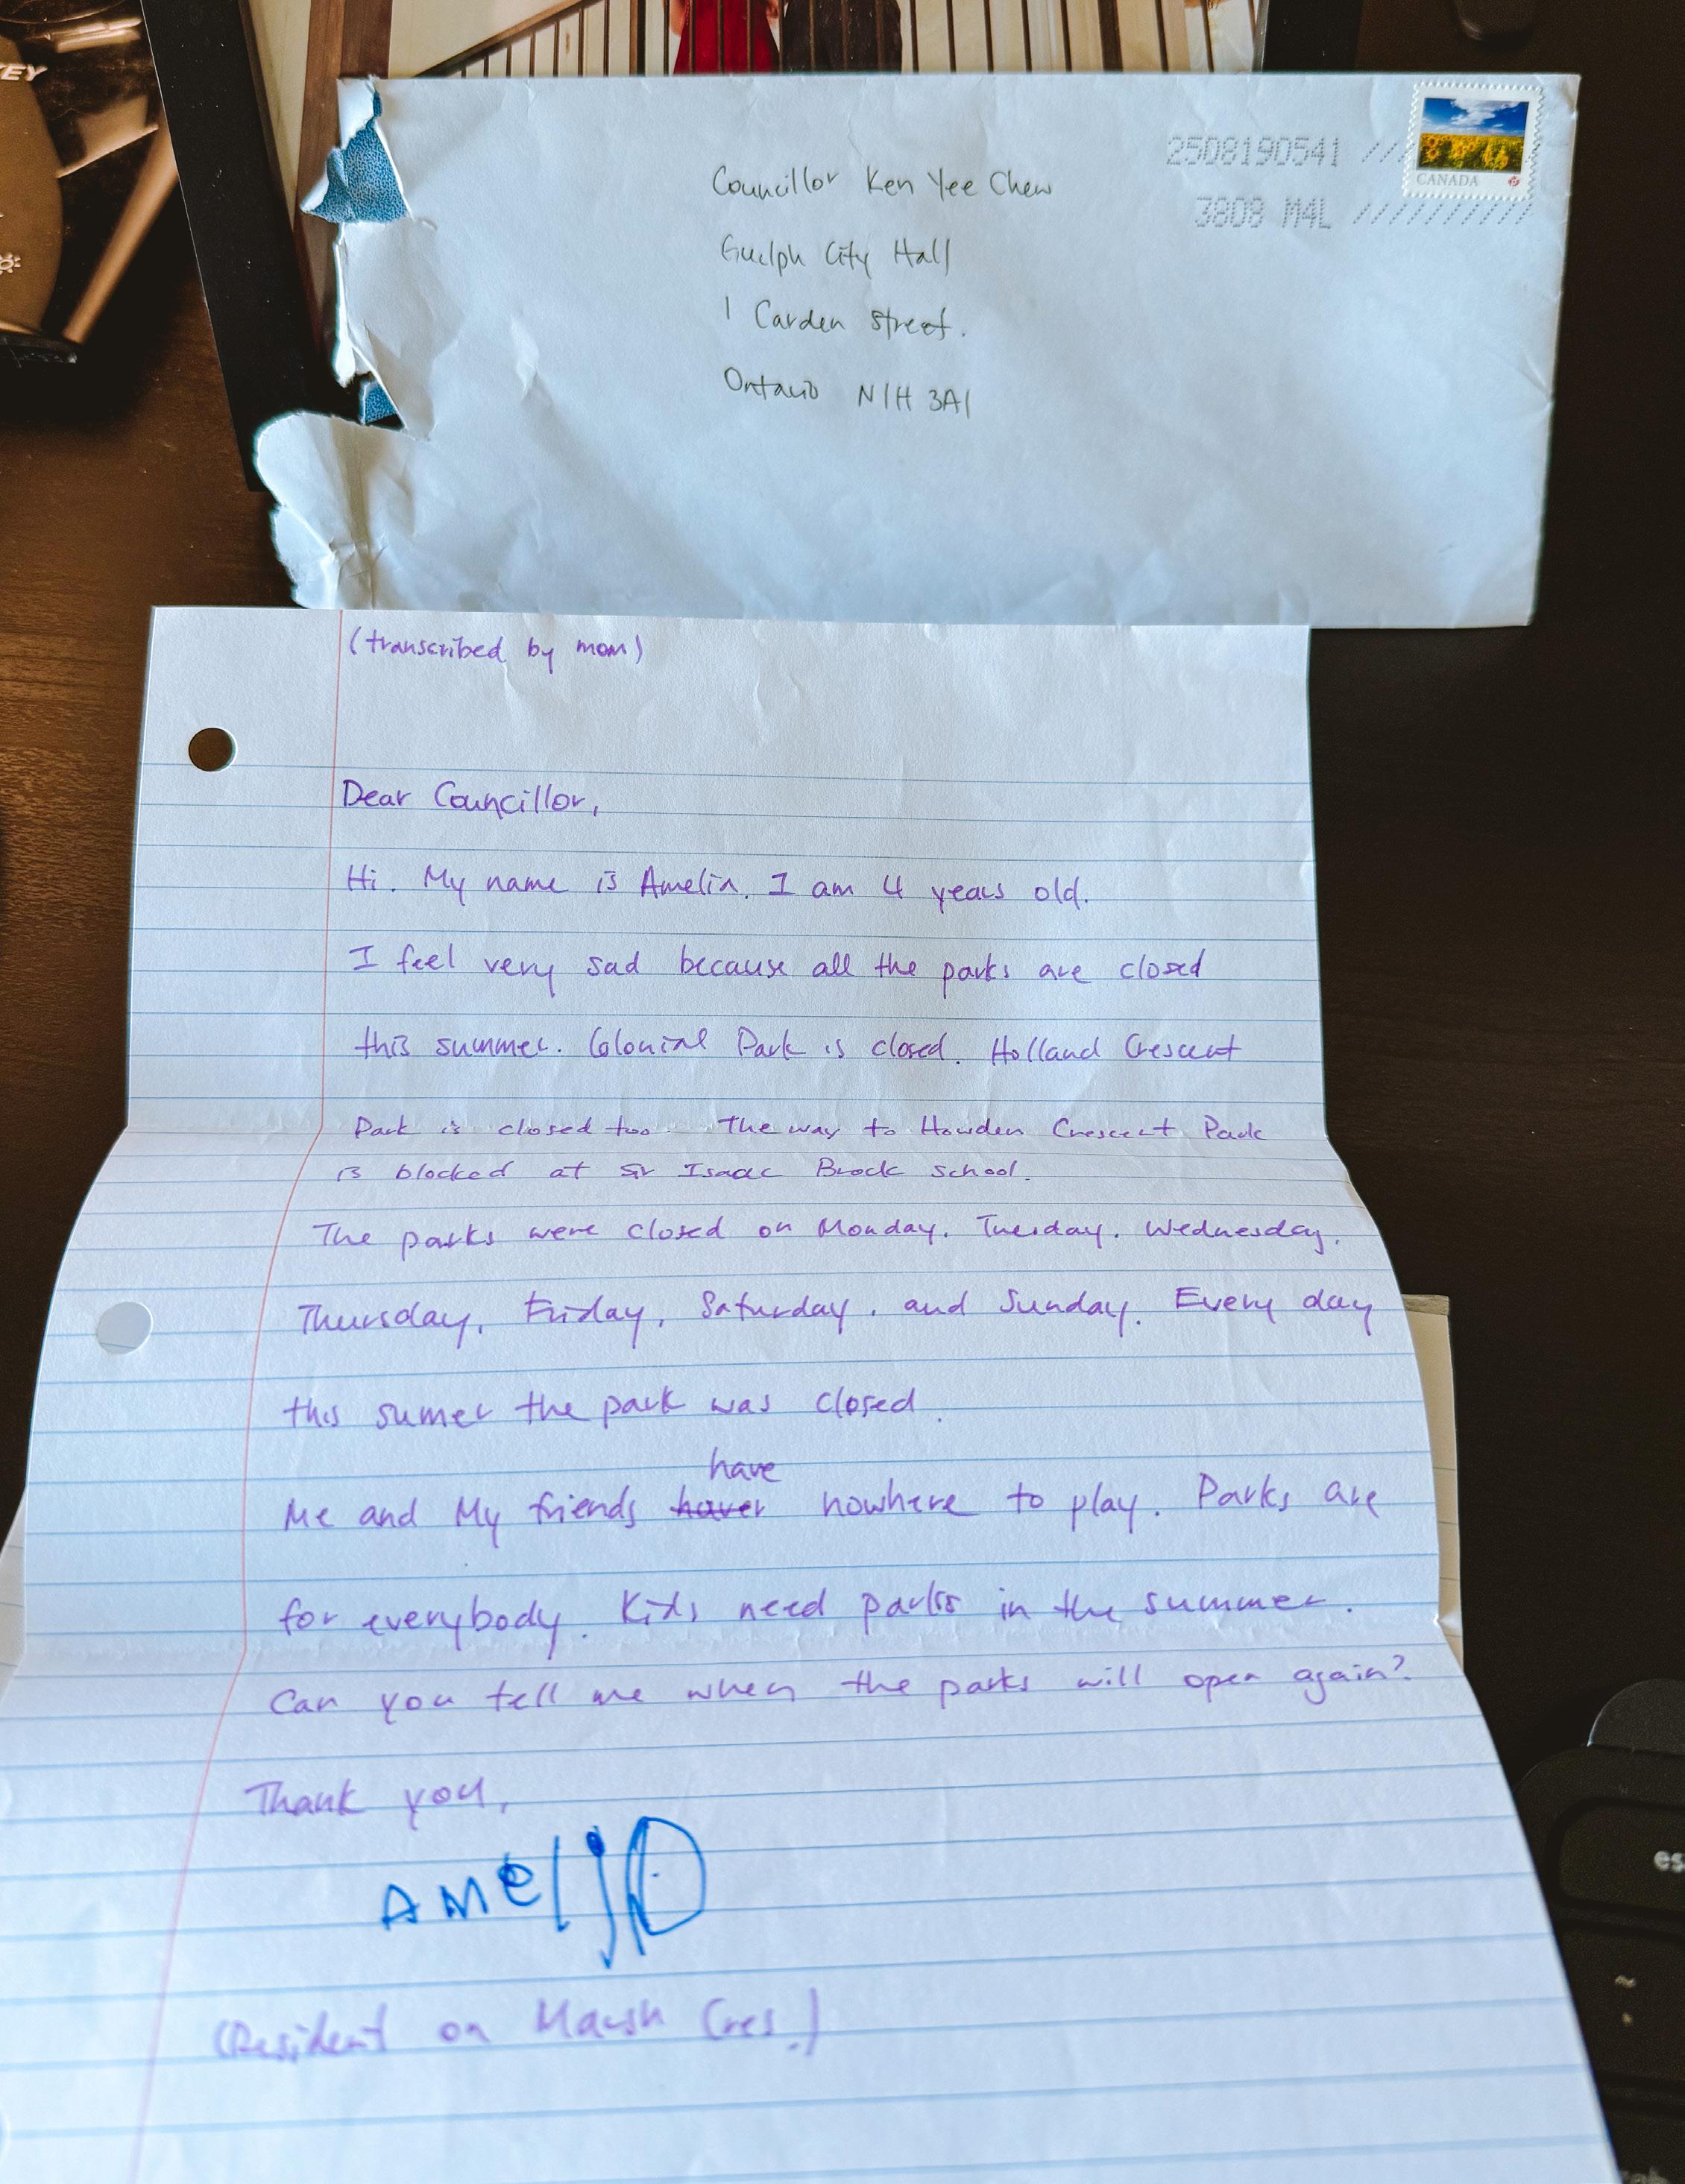 EY
2508190541 //
CANADA
3808 M4L //////////
Councillor Ken Yee Chew
Guelph City Hall
1 Carden street.
Ontario N1H 3A1
(transcribed by mom)
Dear Councillor,
Hi. My name is Amelia. I am 4 years old.
I feel very sad because all the parks are closed
this summer. Colonial Park is closed. Holland Crescent
Park is closed too. The way to Howden Crescent Park
is blocked at Sir Isaac Brock school.
The parks were closed on Monday, Tuesday, Wednesday,
Thursday, Friday, Saturday, and Sunday. Every day
this sumer the park was closed.
have
Me and My friends haver nowhere to play. Parks are
for everybody. Kids need parks in the summer.
Can you tell me when the parks will open again?
Thank you,
AMeliA
(Resident on Marsh Cres.)
es
~